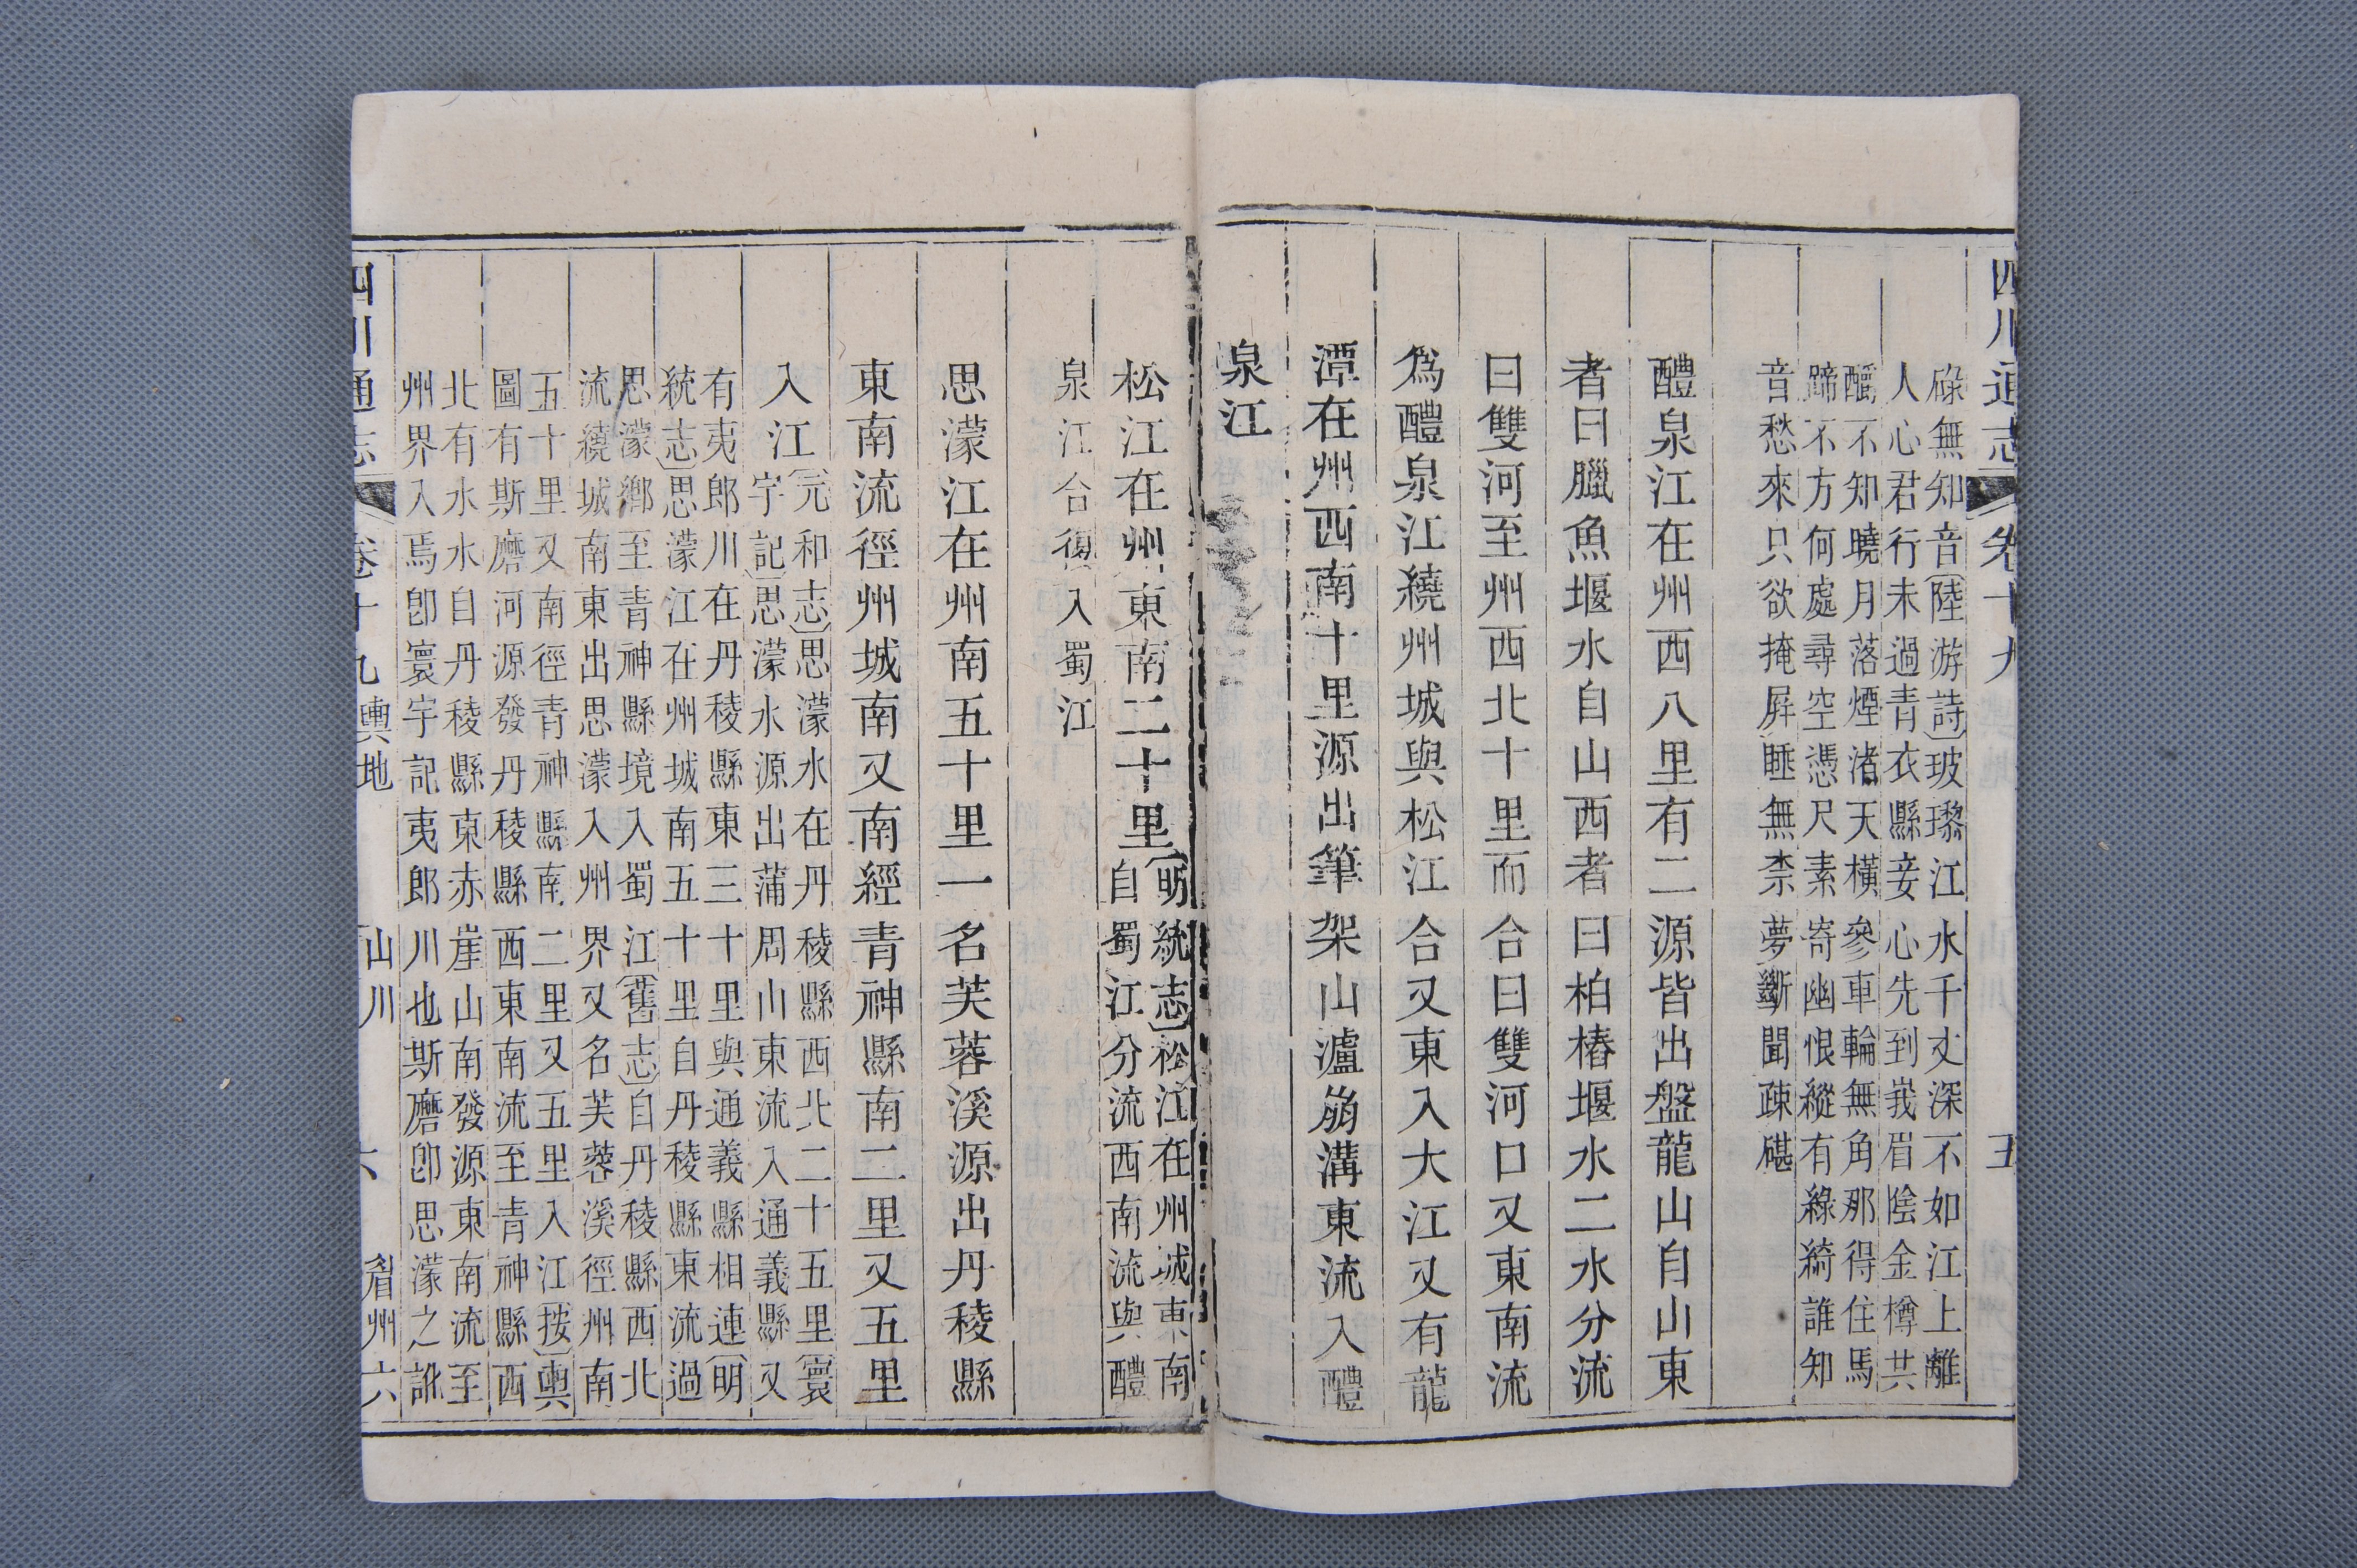 四川通志 卷十九 五
碌無知音〔陸游詩〕玻瓈江水千丈深不如江上離
人心君行未過青衣縣妾心先到峩眉陰金樽共
醑不知曉月落煙渚天橫參車輪無角那得住馬
蹄不方何處尋空憑尺素寄幽恨縱有綠綺誰知
音愁來只欲掩屛睡無柰夢斷聞疎碪
醴泉江在州西八里有二源皆出盤龍山自山東
者曰臘魚堰水自山西者曰柏樁堰水二水分流
曰雙河至州西北十里而合曰雙河口又東南流
爲醴泉江繞州城與松江合又東入大江又有龍
潭在州西南十里源出筆架山瀘崩溝東流入醴
泉江
松江在州東南二十里〔明統志〕松江在州城東南
自蜀江分流西南流與醴
泉江合復入蜀江
思濛江在州南五十里一名芙蓉溪源出丹稜縣
東南流徑州城南又南經青神縣南二里又五里
入江〔元和志〕思濛水在丹稜縣西北二十五里〔寰
宇記〕思濛水源出蒲周山東流入通義縣又
有夷郎川在丹稜縣東三十里與通義縣相連〔明
統志〕思濛江在州城南五十里自丹稜縣東流過
思濛鄉至青神縣境入蜀江〔舊志〕自丹稜縣西北
流繞城南東出思濛入州界又名芙蓉溪徑州南
五十里又南徑青神縣南二里又五里入江按〔輿
圖有斯磨河源發丹稜縣西東南流至青神縣西
北有水水自丹稜縣東赤崖山南發源東南流至
州界入焉卽寰宇記夷郎川也斯磨卽思濛之訛
四川通志 卷十九 輿地 山川 六 眉州 六